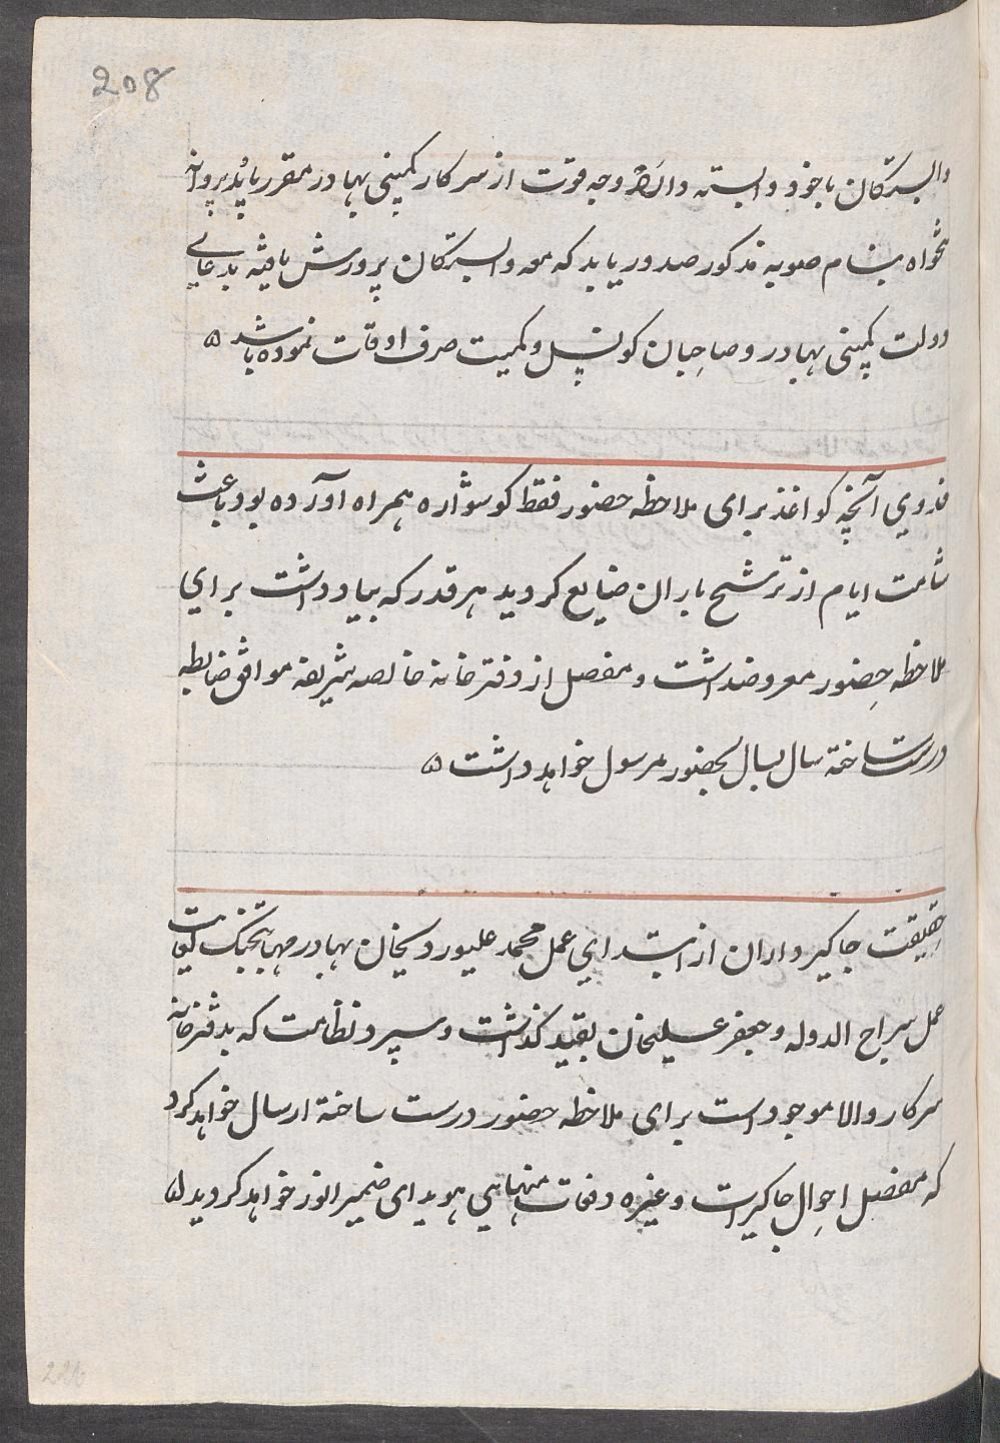 208
وابستگان با خود وابسته دارد وجه قوت از سرکار کمپنی بهادر مقرر یابد پروانه
تنخواه بنام صوبه مذکور صدور یابد که معه وابستگان پرورش یافته بدعای
دولت کمپنی بهادر و صاحبان کونسل و کمیت صرف اوقات نموده باشد ۵
فدوي آنچه کواغذ برای ملاحظه حضور فقط کوشواره همراه آورده بود باعث
شامت ایام از ترشح باران ضایع کردید هر قدر که بیاد داشت براي
ملاحظه حضور معروضداشت و مفصل از دفترخانه خالصه شریفه موافق ضابطه
درست ساخته سال بسال بحضور مرسول خواهد داشت ۵
حقیقت جاکیرداران از ابتداي عمل محمد علیوردیخان بهادر مهابتجنک لغایت
عمل سراج الدوله و جعفر علیخان بقید کذاشت و سپرد نظامت که بدفترخانه
سرکار والا موجود است برای ملاحظه حضور درست ساخته ارسال خواهد کرد
که مفصل احوال جاکیرات و غیره دفعات منهایي هویدای ضمیر انور خواهد کردید ۵